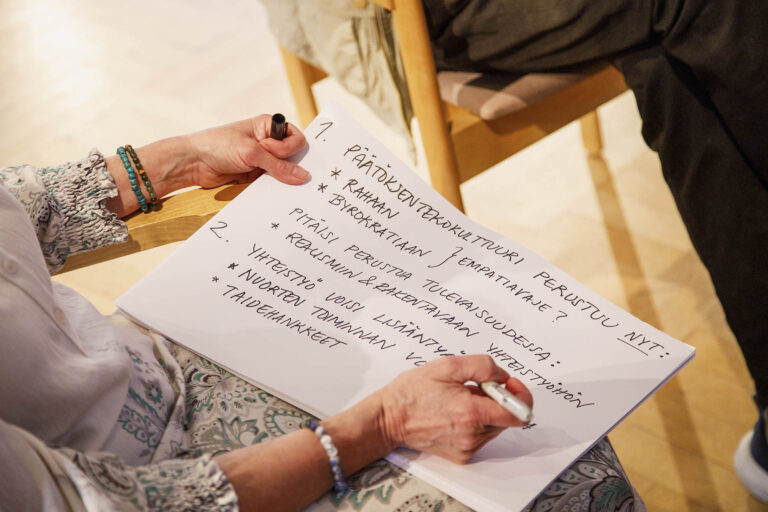 1. PÄÄTÖKSENTEKOKULTTUURI PERUSTUU NYT:
* RAHAAN
* BYROKRATIAAN } EMPATIAVAJE?
PITÄISI PERUSTUA TULEVAISUUDESSA:
* REALISMIIN & RAKENTAVAAN YHTEISTYÖHÖN
2. YHTEISTYÖ VOISI LISÄÄNTYÄ
* NUORTEN TOIMINNAN
* TAIDEHANKKEET